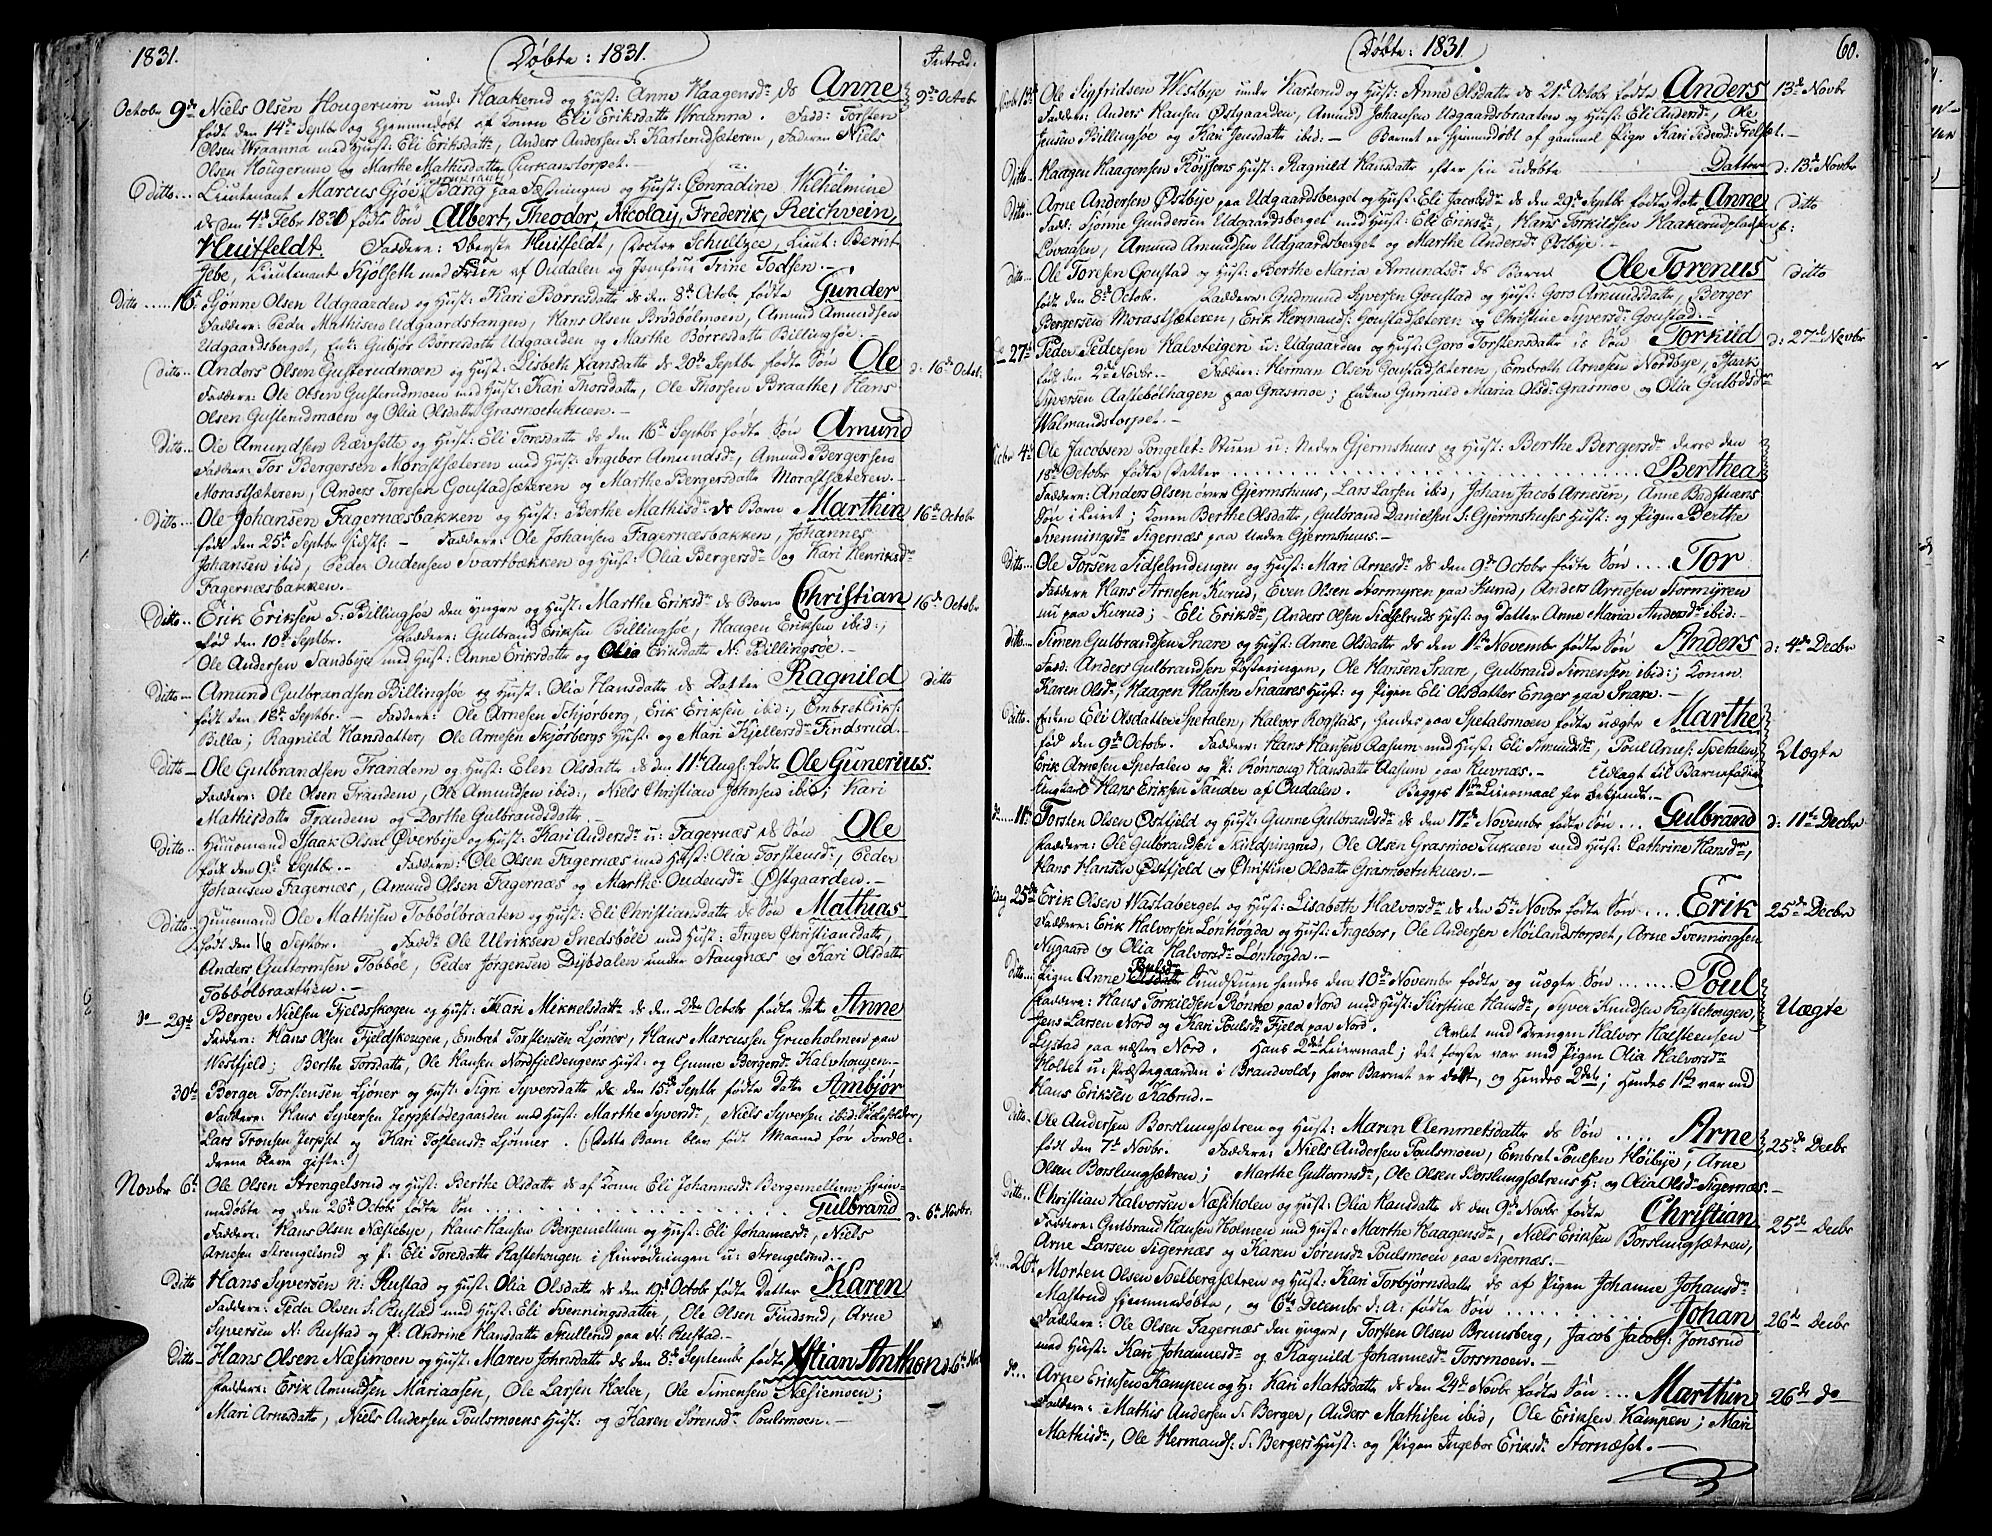 1831.
Døbte: 1831.
Introd.
Octobr 9de Niels Olsen Hougerum und: Haakerud og Hust: Anne Haagensdr ds Anne 9de Octobr
født den 14de Septbr og hjemmedøbt af Konen Eli Eriksdatte Wraanna. Fadd: Torsten
Olsen Wraanna med Hust: Eli Eriksdatte, Anders Andersen S: Karterudsæteren, Faderen Niels
Olsen Hougerum og Marthe Mathisdatte Purkastorpet.
Ditto... Lieutenant Marcus Gjøe Bang paa Fæstningen og Hust: Conradine Wilhelmine
ds den 4de Febr 1831 fødte Søn Albert, Theodor, Nicolay, Frederik, Reichwein,
Huitfeldt. Faddere: Oberste Huitfeldt, Doctor Schultzee, Lieut: Bernt
Gebe, Lieutenant Kjølseth med Frue af Oudalen og Jomfrue Trine Todsen.
Ditto 16de Sjønne Olsen Udgaarden og Hust: Kari Børresdatte ds den 8de Octobr fødte Gunder
Faddere: Peder Mathisen Udgaardstangen, Hans Olsen Brodbølmoen, Amund Amundsen
Udgaardsberget, Enk: Gubjør Børresdatte Udgaarden og Marthe Børresdatte Billingsøe.
ditto.. Anders Olsen Gusterudmoen og Hust: Lisbeth Hansdatte ds 20de Septbr fødte Søn Ole d: 16de Octbr:
Faddere: Ole Olsen Gusterudmoen med Hust: Kari Thorsdatte, Ole Thorsen Braathe, Hans
Olsen Gusterudmoen og Olia Olsdatte Grasmoetukuen.
Ditto.. Ole Amundsen Rævsette og Hust: Eli Toresdatte ds den 16de Septbr fødte Søn Amund
Faddere: Tor Bergersen Morastsæteren med Hust: Ingebor Amundsdr, Amund Bergersen
Morastsæteren, Anders Toresen Goustadsæteren og Marthe Bergersdatte Morastsæteren.
Ditto... Ole Johansen Fagernæsbakken og Hust: Berthe Mathisdr ds Barn Marthin 16de Octobr
født den 25de Septbr sidstl: Faddere: Ole Johansen Fagernæsbakken, Johannes
Johansen ibid, Peder Oudensen Svartbækken og Hust: Olia Bergersdr og Kari Henriksdr
Fagernæsbakken.
Ditto.. Erik Eriksen S: Billingsøe den yngre og Hust: Marthe Eriksdr ds Barn Christian 16de Octobr
fød den 10de Septbr. Faddere: Gulbrand Eriksen Billingsøe, Haagen Eriksen ibid:,
Ole Andersen Sandbye med Hust: Anne Eriksdatte og Olia Eriksdatte N: Billingsøe.
Ditto Amund Gulbrandsen Billingsøe og Hust: Olia Hansdatte ds Datter Ragnild ditto
født den 18de Septbr. Faddere: Ole Arnesen Schjørberg, Erik Eriksen ibid:, Embret Erik:
Billa; Ragnild Hansdatter, Ole Arnesen Skjørbergs Hust: og Mari Kjellersdr Findsrud.
Ditto... Ole Gulbrandsen Trandem og Hust: Elen Olsdatte ds den 11te Aug: født Ole Gunerius.
Faddere: Ole Olsen Trandem, Ole Amundsen ibid:, Niels Christian Johnsen ibid; Kari
Mathisdatte Trandem og Dorthe Gulbrandsdatte.
Ditto.. Huusmand Isaak Olsen Øverbye og Hust: Kari Andersdr u: Fagernæs ds Søn Ole
født den 9de Septbr. Faddere: Ole Olsen Fagernæs med Hust: Olia Torstensdr, Peder
Johansen Fagernæs, Amund Olsen Fagernæs og Marthe Oudensdr Østgaarden.
Ditto.. Huusmand Ole Mathisen Tobbølbraaten og Hust: Eli Christiansdatte ds Søn Mathias
født den 16 Septbr. Fadd: Ole Ulriksen Snedsbøle med Hust: Inger Christiansdatte,
Anders Guttormsen Tobbøl, Peder Jørgensen Dybdalen under Haugnæs og Kari Olsdatte
Tobbølbraathen.
do 29de Berger Nielsen Fjeldskogen og Hust: Kari Mikkelsdatte ds den 2den Octobr fødte Dattr Anne
Faddere: Hans Olsen Fjeldskougen, Embret Torstensen Ljøner, Hans Marcussen Grueholmen paa
Westfjeld; Berthe Torsdatte, Ole Hansen Nordfjeldengens Hust: og Gunne Bergersdr Kalvhougen
30te Berger Torstensen Ljøner og Hust: Sigri Syversdatte ds den 15de Septbr fødte Dattr Ambjør
Faddere: Hans Syversen Jerpsetødegaarden med Hust: Marthe Syversdr, Niels Syversen ibid:
Lars Tronsen Jerpset og Kari Tostensdr Ljønner. (Dette Barn blev født Maaned før Foræl-
drene bleve gifte:)
Novbr 6te Ole Olsen Strengelsrud og Hust: Berthe Olsdatte ds af Konen Eli Johannesdr Bergemellem hjem-
medøbte og den 26de Octobr fødte Søn Gulbrand d: 6te Novbr.
Faddere: Hans Olsen Næssebye, Hans Hansen Bergemellum og Hust: Eli Johannesdr, Niels
Arnesen Strengelsrud og P: Eli Toresdatte Kastehougen i Rinrødningen u: Strengelsrud:
Ditto Hans Syversen N: Rustad og Hust: Olia Olsdatte ds den 19de Octobr fødte Datter Karen
Faddere: Peder Olsen S: Rustad med Hust: Eli Svenningsdatte, Ole Olsen Findsrud, Arne
Syversen N: Rustad og P: Andrine Hansdatte Skullerud paa N: Rustad.
Ditto Hans Olsen Næsimoen og Hust: Maren Johnsdatte ds den 8de Septembr fødte Xstian Anthon d: 6te Nov
Faddere: Erik Amundsen Mariaasen, Ole Larsen Hoeler, Ole Simensen Næsiemoen;
Mari Arnesdatte, Niels Andersen Poulsmoens Hust: og Karen Sørensdr Poulsmoen.
Døbte: 1831
60.
Novbr 13de Ole Sigfridsen Westbye under Karterud og Hust: Anne Olsdatte ds 21de Octobr fødte Anders 13de Novbr
Faddere: Anders Hansen Østgaarden, Amund Johansen Udgaardsbraaten og Hust: Eli Andersdr, Ole
Jensen Billingsøe og Kari Jensdatte ibid. Barnet er hjemmedøbt af gammel Pige Kari Pedersdr Frelset.
Ditto.. Haagen Haagensen Røissens Hust: Ragnild Hansdatte efter sin udøbte Datter d: 13de Novbr
Ditto.. Arne Andersen Østbye paa Udgaardsberget og Hust: Eli Jacobsdr ds den 29de Septbr fødte Dattr Anne Ditto
Fadd. Sjønne Gundersen Udgaardsberget med Hust: Eli Eriksdr, Hans Torkildsen Haakerudpladsen
Lovaasen, Amund Amundsen Udgaardsberget og Marthe Andersdr Østbye.
ditto... Ole Toresen Goustad og Hust: Berthe Maria Amundsdr ds Barn Ole Torenus ditto
født den 8de Octobr. Faddere: Gudmund Syversen Goustad og Hust: Goro Amundsdatte, Berger
Bergersen Morastsæteren, Erik Hermands: Goustadsæteren og Christine Syversdr Goustad.
27de Peder Pedersen Halvteigen u: Udgaarden og Hust: Goro Torstensdatte ds Søn Torkild d: 27de Novbr
født den 2den Novbr. Faddere: Herman Olsen Goustadsæteren, Embreth Arnesen Nordbye, Isaak
Syversen Aastebølhagen paa Grasmoe; Enken Gunnild Maria Olsdr Grasmoe og Olia Gulbdsdr
Walmandstorpet.
Decbr 4de Ole Jacobsen Pongelet-Stuen u: Nedre Gjermshuus og Hust: Berthe Bergersdr deres den
18de Octobr fødte Datter Berthea
Faddere: Anders Olsen øvre Gjermshuus, Lars Larsen ibid, Johan Jacob Arnesen, Arne Badstuens
Søn i Leiret; Konen Berthe Olsdatte, Gulbrand Danielsen S: Gjermshuses Hust: og Pigen Berthe
Svenningsdr Sigernæs paa Nedre Gjermshuus.
Ditto... Ole Torsen Sidselrudengen og Hust: Mari Arnesdr ds den 9de Octobr fødte Søn.... Tor
Faddere Hans Arnesen Kurud, Even Olsen Stormyren paa Kurud, Anders Arnesen Stormyren
nu paa Kurud; Eli Eriksdr, Anders Olsen Sidselruds Hust: og Datter Anne Maria Andersdr ibid:
ditto.. Simen Gulbrandsen Snare og Hust: Anne Olsdatte ds den 1ste Novembr fødte Søn Anders d: 4de Decbr
Fadd: Anders Gulbrandsen Posteringen, Ole Hansen Snare, Gulbrand Simensen ibid:; Konen
Karen Olsdr, Haagen Hansen Snaares Hust: og Pigen Eli Olsdatter Enger paa Snare.
Ditto. Enken Eli Olsdatter Spetalen, Halvor Rogstads, hendes paa Spetalsmoen fødte uægte Marthe
fød den 9de Octobr. Faddere: Hans Hansen Aasum med Hust: Eli Simensdr, Poul Arnes: Spetalen, Uægte
Erik Arnesen Spetalen og P: Rønnoug Hansdatte Aasum paa Kuvnæs. Udlagt til Barnefader
Ungkarl Hans Eriksen Sander af Oudalen. Begges 1ste Leiermaal før bekjendt.
do 11te Torsten Olsen Østfjeld og Hust: Gunne Gulbrandsdr ds den 17de Novembr fødte Søn... Gulbrand d: 11te Decbr
Faddere: Ole Gulbrandsen Skuldpingrud, Ole Olsen Grasmoe Tukuen med Hust: Cathrine Hansdr,
Hans Hansen Østfjeld og Christine Olsdatte Grasmoetukuen.
25de Erik Olsen Wastaberget og Hust: Lisabeth Halvorsdr ds den 5te Novbr fødte Søn.... Erik 25de Decbr
Faddere: Erik Halvorsen Lønhogda og Hust: Ingebor, Ole Andersen Møilandstorpet, Arne Svenningsen
Nygaard og Olia Halvorsdr Lønhogda.
Ditto.. Pigen Anne Poulsdr Lundstuen hendes den 10de Novembr fødte og uægte Søn....... Poul
Faddere: Hans Torkildsen Rønne paa Nord med Hust: Kirstine Hansdr, Syver Knudsen Kastehougen, Uægte
Jens Larsen Nord og Kari Poulsdr Fjeld paa Nord. Avlet med Drengen Halvor Halsteensen
Lystad paa næstre Nord. Hans 2det Leiermaal; det første var med Pigen Olia Halvorsdr
Holtet u: Præstegaarden i Brandvold, hvor Barnet er døbt, og Hendes 2det; Hendes 1ste var med
Hans Eriksen Kabrud.
Ditto.. Ole Andersen Borslungsætren og Hust: Maren Clemmetsdatte ds Søn..... Arne 25de Decbr
født den 7de Novbr. Faddere: Niels Andersen Poulsmoen, Embret Poulsen Høibye, Arne
Olsen Borslungsætren; Marthe Guttormsdr, Ole Olsen Borslungsætrens H: og Olia Olsdr Sigernæs.
Ditto.. Christian Halvorsen Næsiholen og Hust: Olia Hansdatte ds den 9de Novbr fødte Christian 25de Decbr
Faddere: Gulbrand Hansen Holmen med Hust: Marthe Haagensdr, Niels Eriksen Borslungsætren,
Arne Larsen Sigernæs og Karen Sørensdr Poulsmoen paa Sigernæs.
26de Morten Olsen Solbergsætren og Hust: Kari Torbjørnsdatte ds af Pigen Johanne Johansdr
Mastrud hjemmedøbte, og 6te Decembr d: A: fødte Søn...... Johan 26de Decbr
Faddere: Ole Olsen Fagernæs den yngre, Torsten Olsen Brunsberg, Jacob Jacobs: Jonsrud
med Hust: Kari Johannesdr og Ragnild Johannesdr Torsmoen.
do... Arne Eriksen Kampen og H: Kari Mathisdatte ds den 24de Novbr fødte Søn.... Marthin 26de do
Faddere: Mathis Andersen S: Berger, Anders Mathisen ibid, Ole Eriksen Kampen; Mari
Mathisdr, Ole Hermands: S: Bergers Hust: og Pigen Ingebor Eriksdr Stornæset.